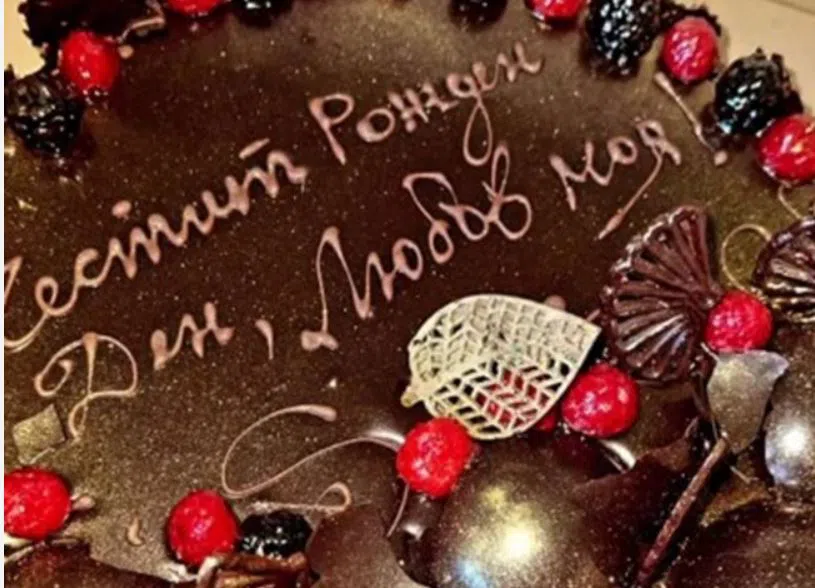 Честит Рожден
Ден, Любов моя